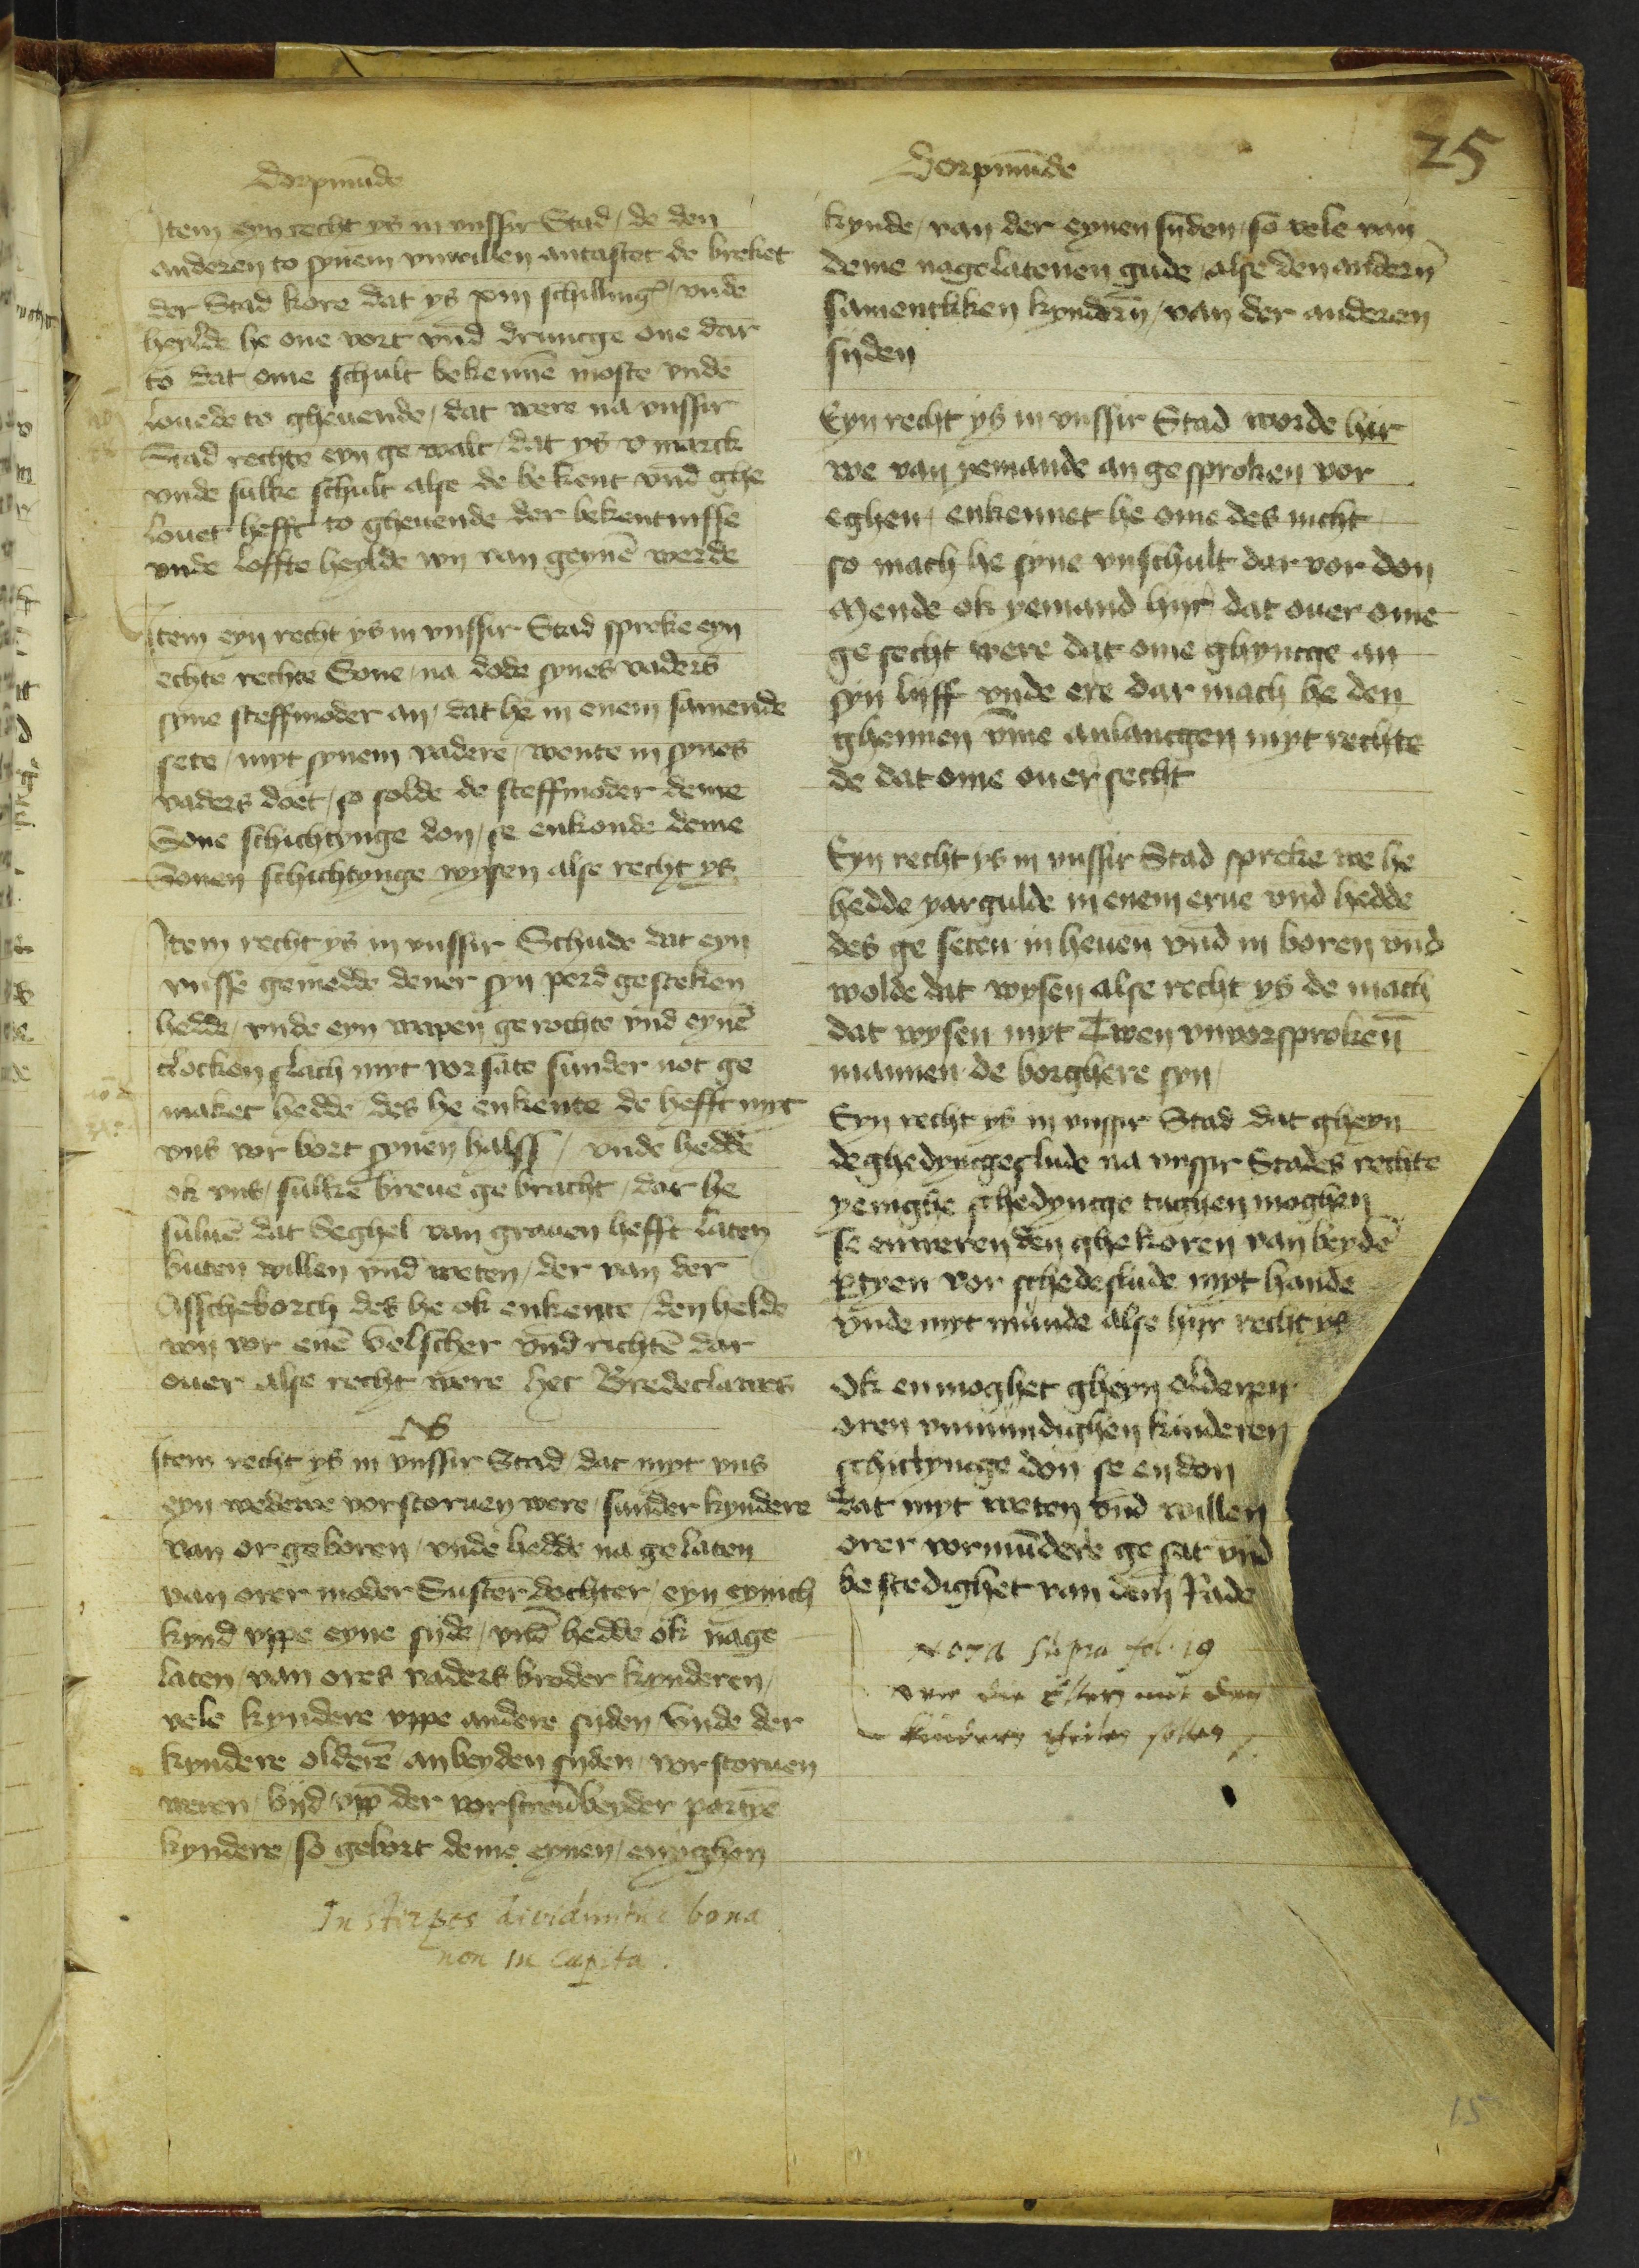 25
Dorpmūde
Item eyn recht ys in vnssir Stad / de den
anderen to synem vnwillen antastet de breket
der Stad kore dat ys xiiii schilling / vnde
heylde he one vort vnd drunge one dar
to dat ome schult bekennē moste vnde
louede to gheuende / dat were na vnssir
Stad rechte eyn ge walt / dat ys v marck
vnde sulke schult alse de bekent vnd ghe
louet hefft to gheuende der bekentnisse
vnde loffte heylde wy van geynē werde
Item eyn recht ys in vnssir Stad spreke eyn
echte rechte Sone / na dode synes vaders
syne steffmoder an / dat he in enem samende
sete / myt synem vadere / wente in synes
vaders doet / so solde de steffmoder deme
Sone schichtynge don / se enkonde deme
Sonen schichtynge wysen alse recht ys
Item recht ys in vnssir Schude dat eyn
vnsse gemedde dener syn perd gesteken
hedde / vnde eyn wapen gerochte vnd eynē
clocken slach myt vorsate sunder not ge
maket hedde des he enkente de hefft myt
vns vor boet synen halss / vnde hedde
ok vns / sulkē breue ge bracht / dar he
suluē dat Seghel van grauen hefft laten
buten willen vnd weten / der van der
Asscheborch des he ok enkente / den helde
wy vor enē velscher vnd richtē dar
ouer alse recht were het Bredeclawes
NB
Item recht ys in vnssir Stad / dat myt vns
eyn wedewe vorstoruen were / sunder kyndere
van or geboren / vnde hedde na gelaten
van orer moder Suster dochter / eyn eynich
kynd vppe eyne syde / vnd hedde ok nage
laten / van ores vaders broder kynderen /
vele kyndere vppe andere syden / vnde der
kyndere olderē an beyden syden / vorstoruen
weren / byd vp der vorscreuē beyder partye
kyndere / so gebort deme eynen / enyghen
In stirpes dividuntur bona
non in capita .
Dorpmūde
kynde / van der eynen syden / so vele van
deme nagelatenen gude / alse den andern
samentliken kyndern / van der anderen
syden
Eyn recht ys in vnssir Stad worde hir
we van yemande an gesproken vor
eghen / enkennet he ome des nicht
so mach he syne vnschult dar vor don
Mende ok yemand hyr dat ouer ome
ge secht were dat ome ghynge an
syn lyff vnde ere dar mach he den
ghennen vme anlangen myt rechte
de dat ome ouer secht
Eyn recht ys in vnssir Stad spreke we he
hedde yargulde in enem erue vnd hedde
des ge seten in heuen vnd in boren vnd
wolde dat wysen alse recht ys de mach
dat wysen myt Twen vnvorsproken
mannen de borghere syn /
Eyn recht ys in vnssir Stad dat gheyn
deghedyngeslude na vnssir Stades rechte
yenighe ghedynge tughen moghen
se enweren den ghekoren van beydē
ptyen vor schedeslude myt hande
vnde myt munde alse hyr recht ys
Ok enmoghet gheyn olderen
oren vnmundighen kinderen
schictynge don se en don
dat myt weten vnd willen
orer vormūdere ge sat vnd
bestedighet van dem Rade
Nota supra fol. 19
wie die Eltern mit den
kindern theilen sollen
15